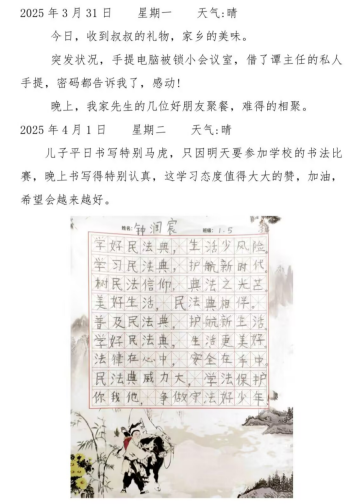 2025年3月31日 星期一 天气:晴
今日，收到叔叔的礼物，家乡的美味。
突发状况，手提电脑被锁小会议室，借了谭主任的私人
手提，密码都告诉我了，感动!
晚上，我家先生的几位好朋友聚餐，难得的相聚。
2025年4月1日 星期二 天气:晴
儿子平日书写特别马虎，只因明天要参加学校的书法比
赛，晚上书写得特别认真，这学习态度值得大大的赞，加油，
希望会越来越好。
姓名: 钟润宸 班级: 1.5
学好民法典，生活少风险，
学习民法典，护航新时代
树民法信仰，典法之光芒
美好生活，民法典相伴。
普及民法典，护航新生活，
学好民法典，生活更美好
法律在心中，安全在手中
民法典威力大，学法保护
你我他，争做守法好少年